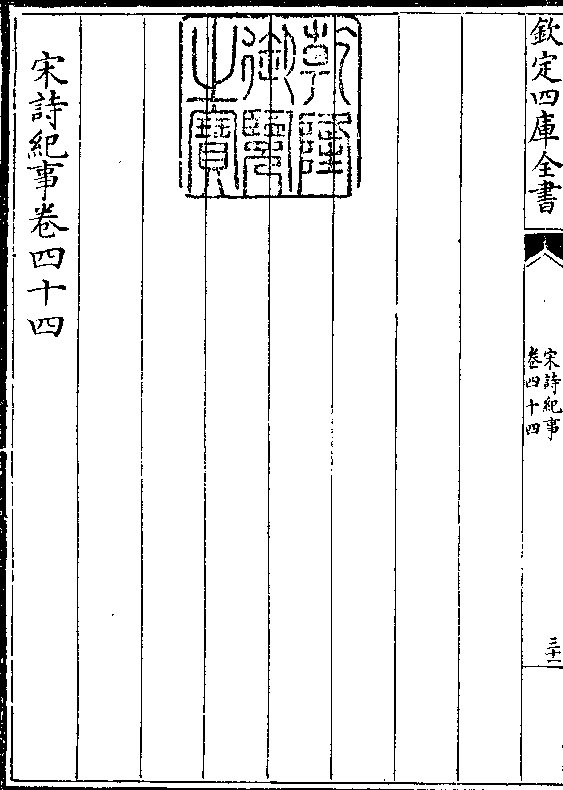 欽定四庫全書
宋詩紀事
卷四十四
三十二
乾隆
御覽
之寶
宋詩紀事卷四十四